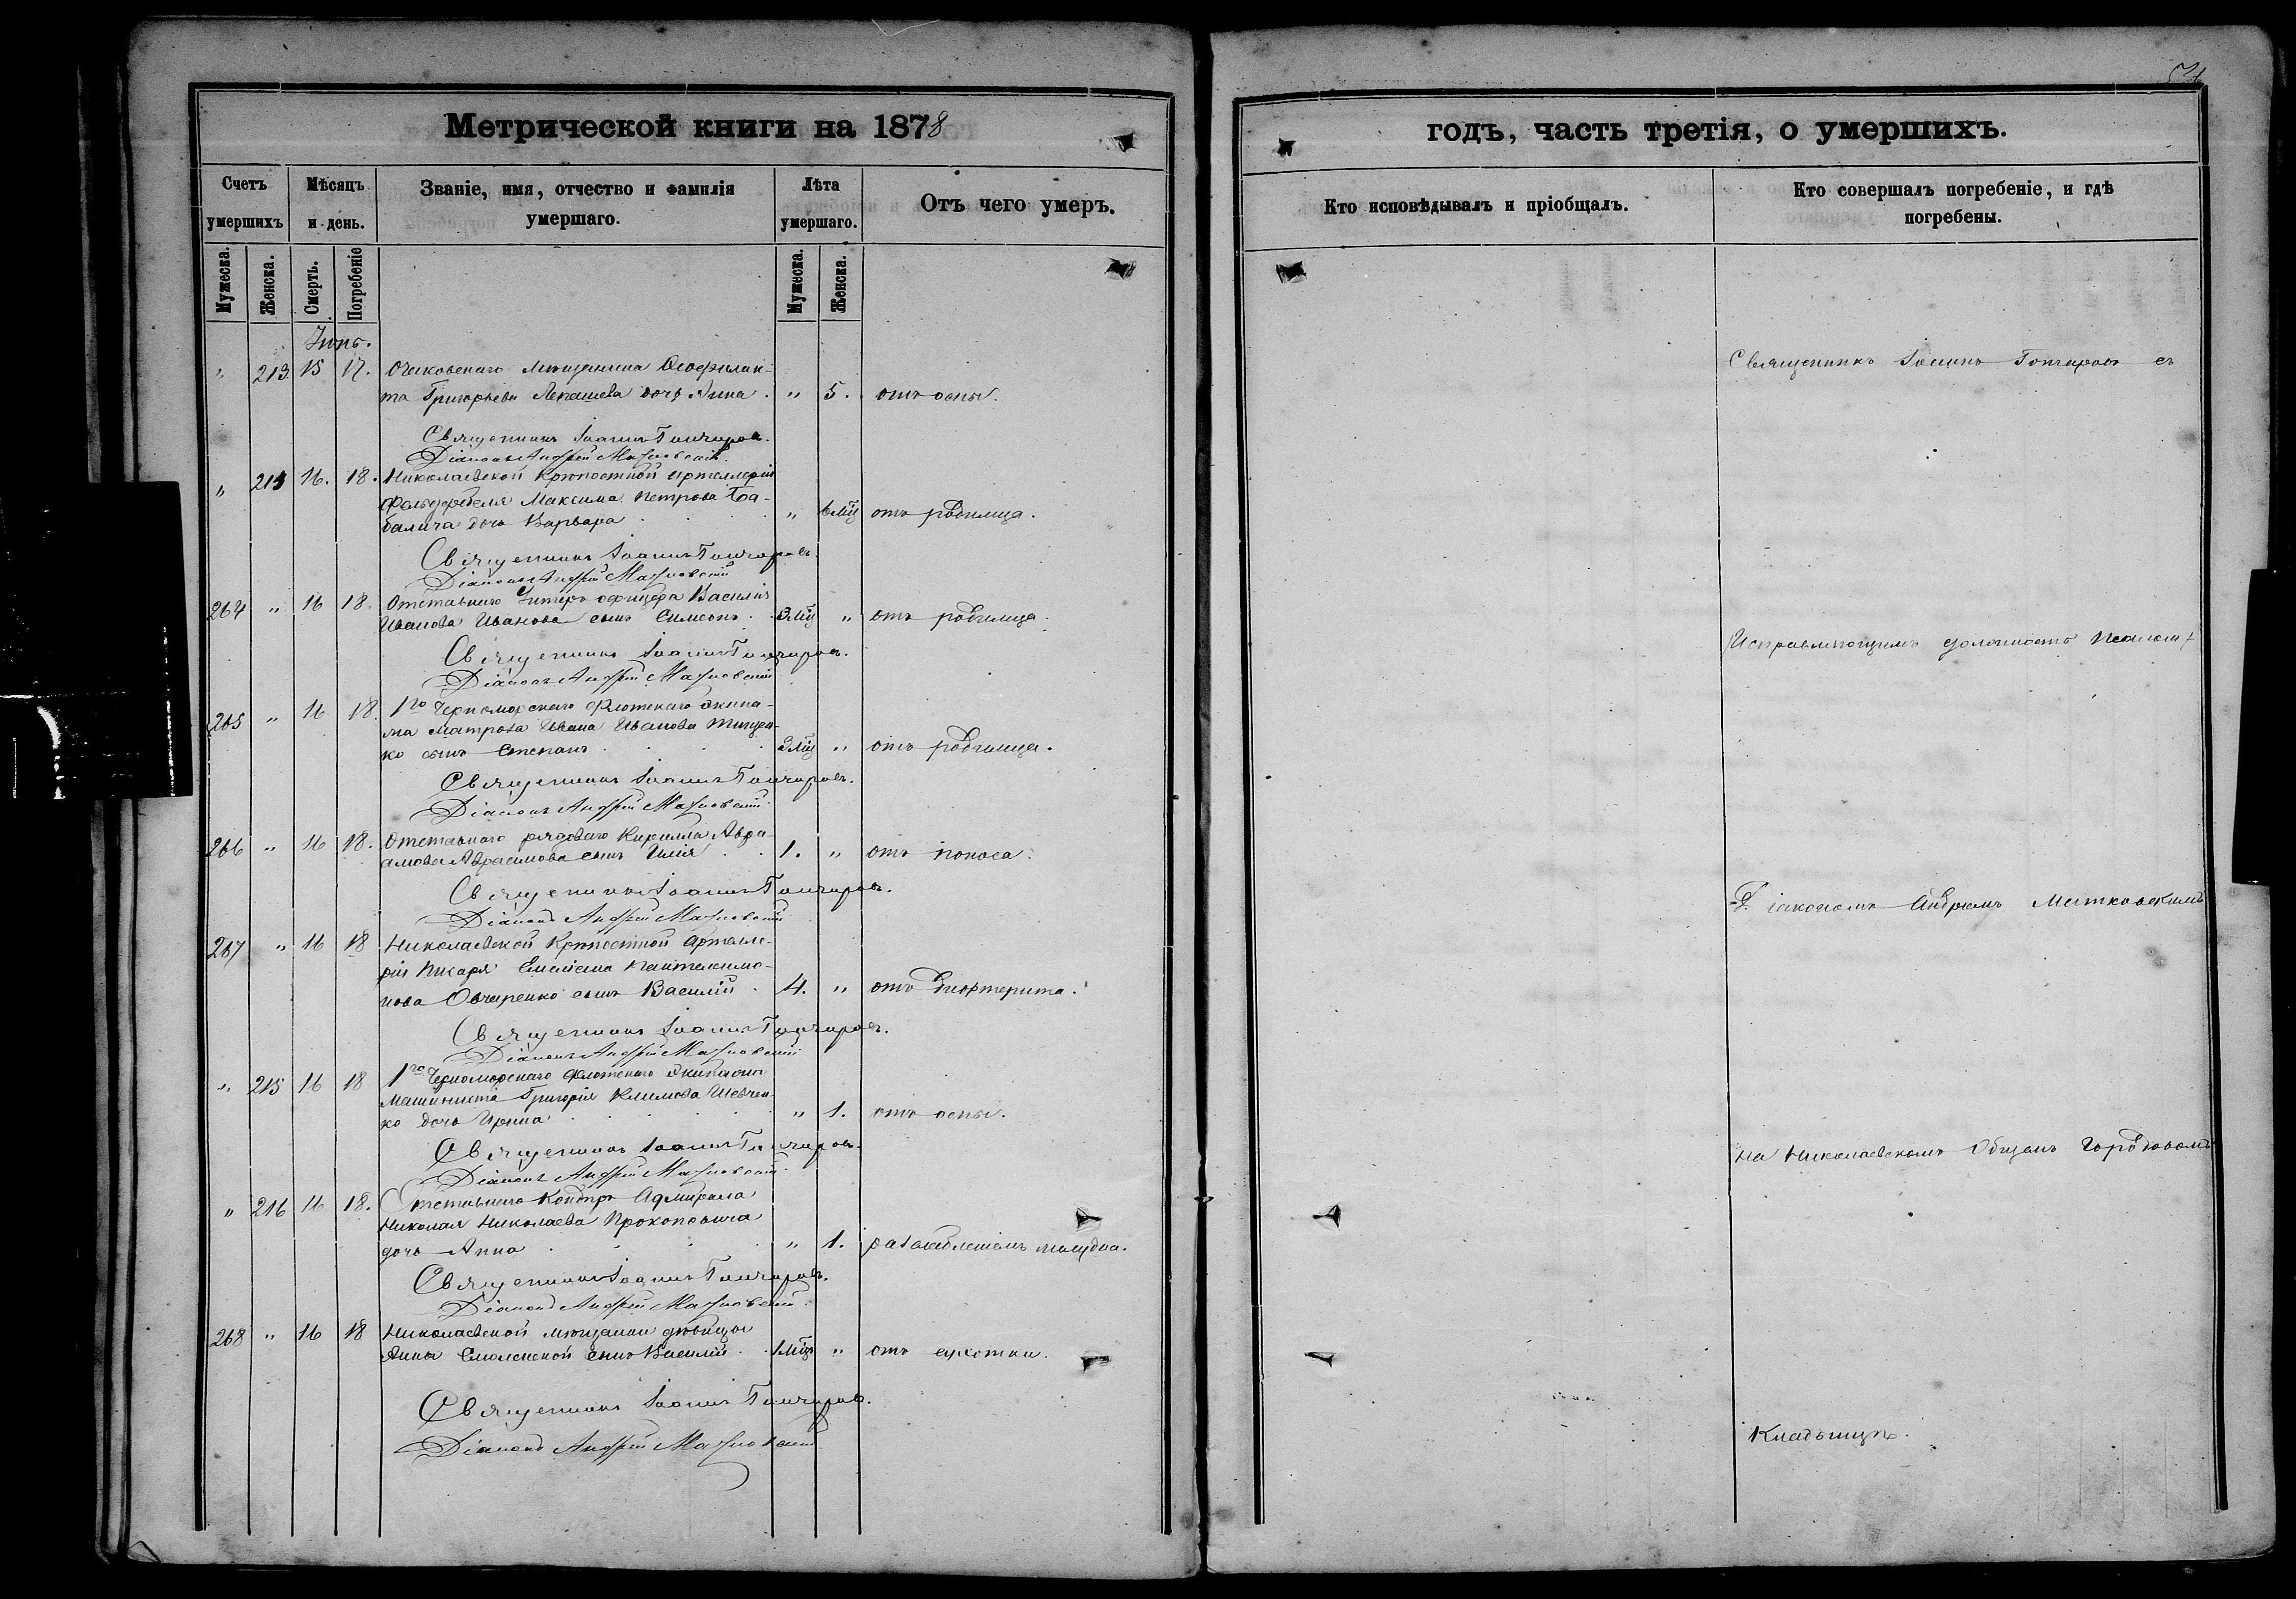 54
Метрической книги на 1878
годъ, часть третія, о умершихъ.
Счетъ умершихъ
Мѣсяцъ и день.
Званіе, имя, отчество и фамилія умершаго.
Лѣта умершаго.
Отъ чего умеръ.
Кто исповѣдывалъ и пріобщалъ.
Кто совершалъ погребеніе, и гдѣ погребены.
Мужеска.
Женска.
Смерть.
Погребеніе
Мужеска.
Женска.
" 213 15 17. Очаковскаго мѣщанина Ѳеофилак-
та Григорьева дочь Анна . " 5. отъ оспы.
Священникъ Іоаннъ Гончаровъ.
Діаконъ Андрей
" 16. 18. Николаевской Крѣпостной Артиллеріи
Фельдфебеля Максима Петрова Ба-
балича дочь Варвара " 6 мѣц отъ родимца.
Священникъ Іоаннъ Гончаровъ.
Діаконъ Андрей
264 " 16 18. Отставнаго Унтеръ офицера Василія
Иванова Иванова сынъ Симеонъ . 3 мѣц " отъ родимца.
Священникъ Іоаннъ Гончаровъ.
Діаконъ Андрей
265 " 16 18. 1го Черноморскаго Флотскаго экипа-
жа матроса Ивана Иванова
ко сынъ Степанъ 3 мѣц " отъ родимца.
Священникъ Іоаннъ Гончаровъ.
Діаконъ Андрей
266 " 16 18. Отставнаго рядоваго Кирилла Авра-
амова Аврамова сынъ Илія . . 1. " отъ поноса.
Священникъ Іоаннъ Гончаровъ.
Діаконъ Андрей
267 " 16 18 Николаевской Крѣпостной Артилле-
ріи Писаря Емеліана Пантелеимо-
нова Овчаренко сынъ Василій . 4. " отъ дифтерита.
Священникъ Іоаннъ Гончаровъ.
Діаконъ Андрей
" 215 16 18 1го Черноморскаго Флотскаго экипажа
Машиниста Григорія Климова Шевчен-
ко дочь Ирина " 1. отъ оспы.
Священникъ Іоаннъ Гончаровъ.
Діаконъ Андрей
" 216 16 18. Отставнаго Контръ Адмирала
Николая Николаева Прокоповича
дочь Анна " 1. разслабленіемъ желудка.
Священникъ Іоаннъ Гончаровъ.
Діаконъ Андрей
268 " 16 18 Николаевской мѣщанки дѣвицы
Анны Смоленской сынъ Василій . 1 мѣц " отъ сухотки.
Священникъ Іоаннъ Гончаровъ.
Діаконъ Андрей
Священникъ Іоаннъ Гончаровъ съ
Исправляющимъ должность
Діакономъ Андреемъ
на Николаевскомъ Общемъ Городовомъ
Кладбищѣ.